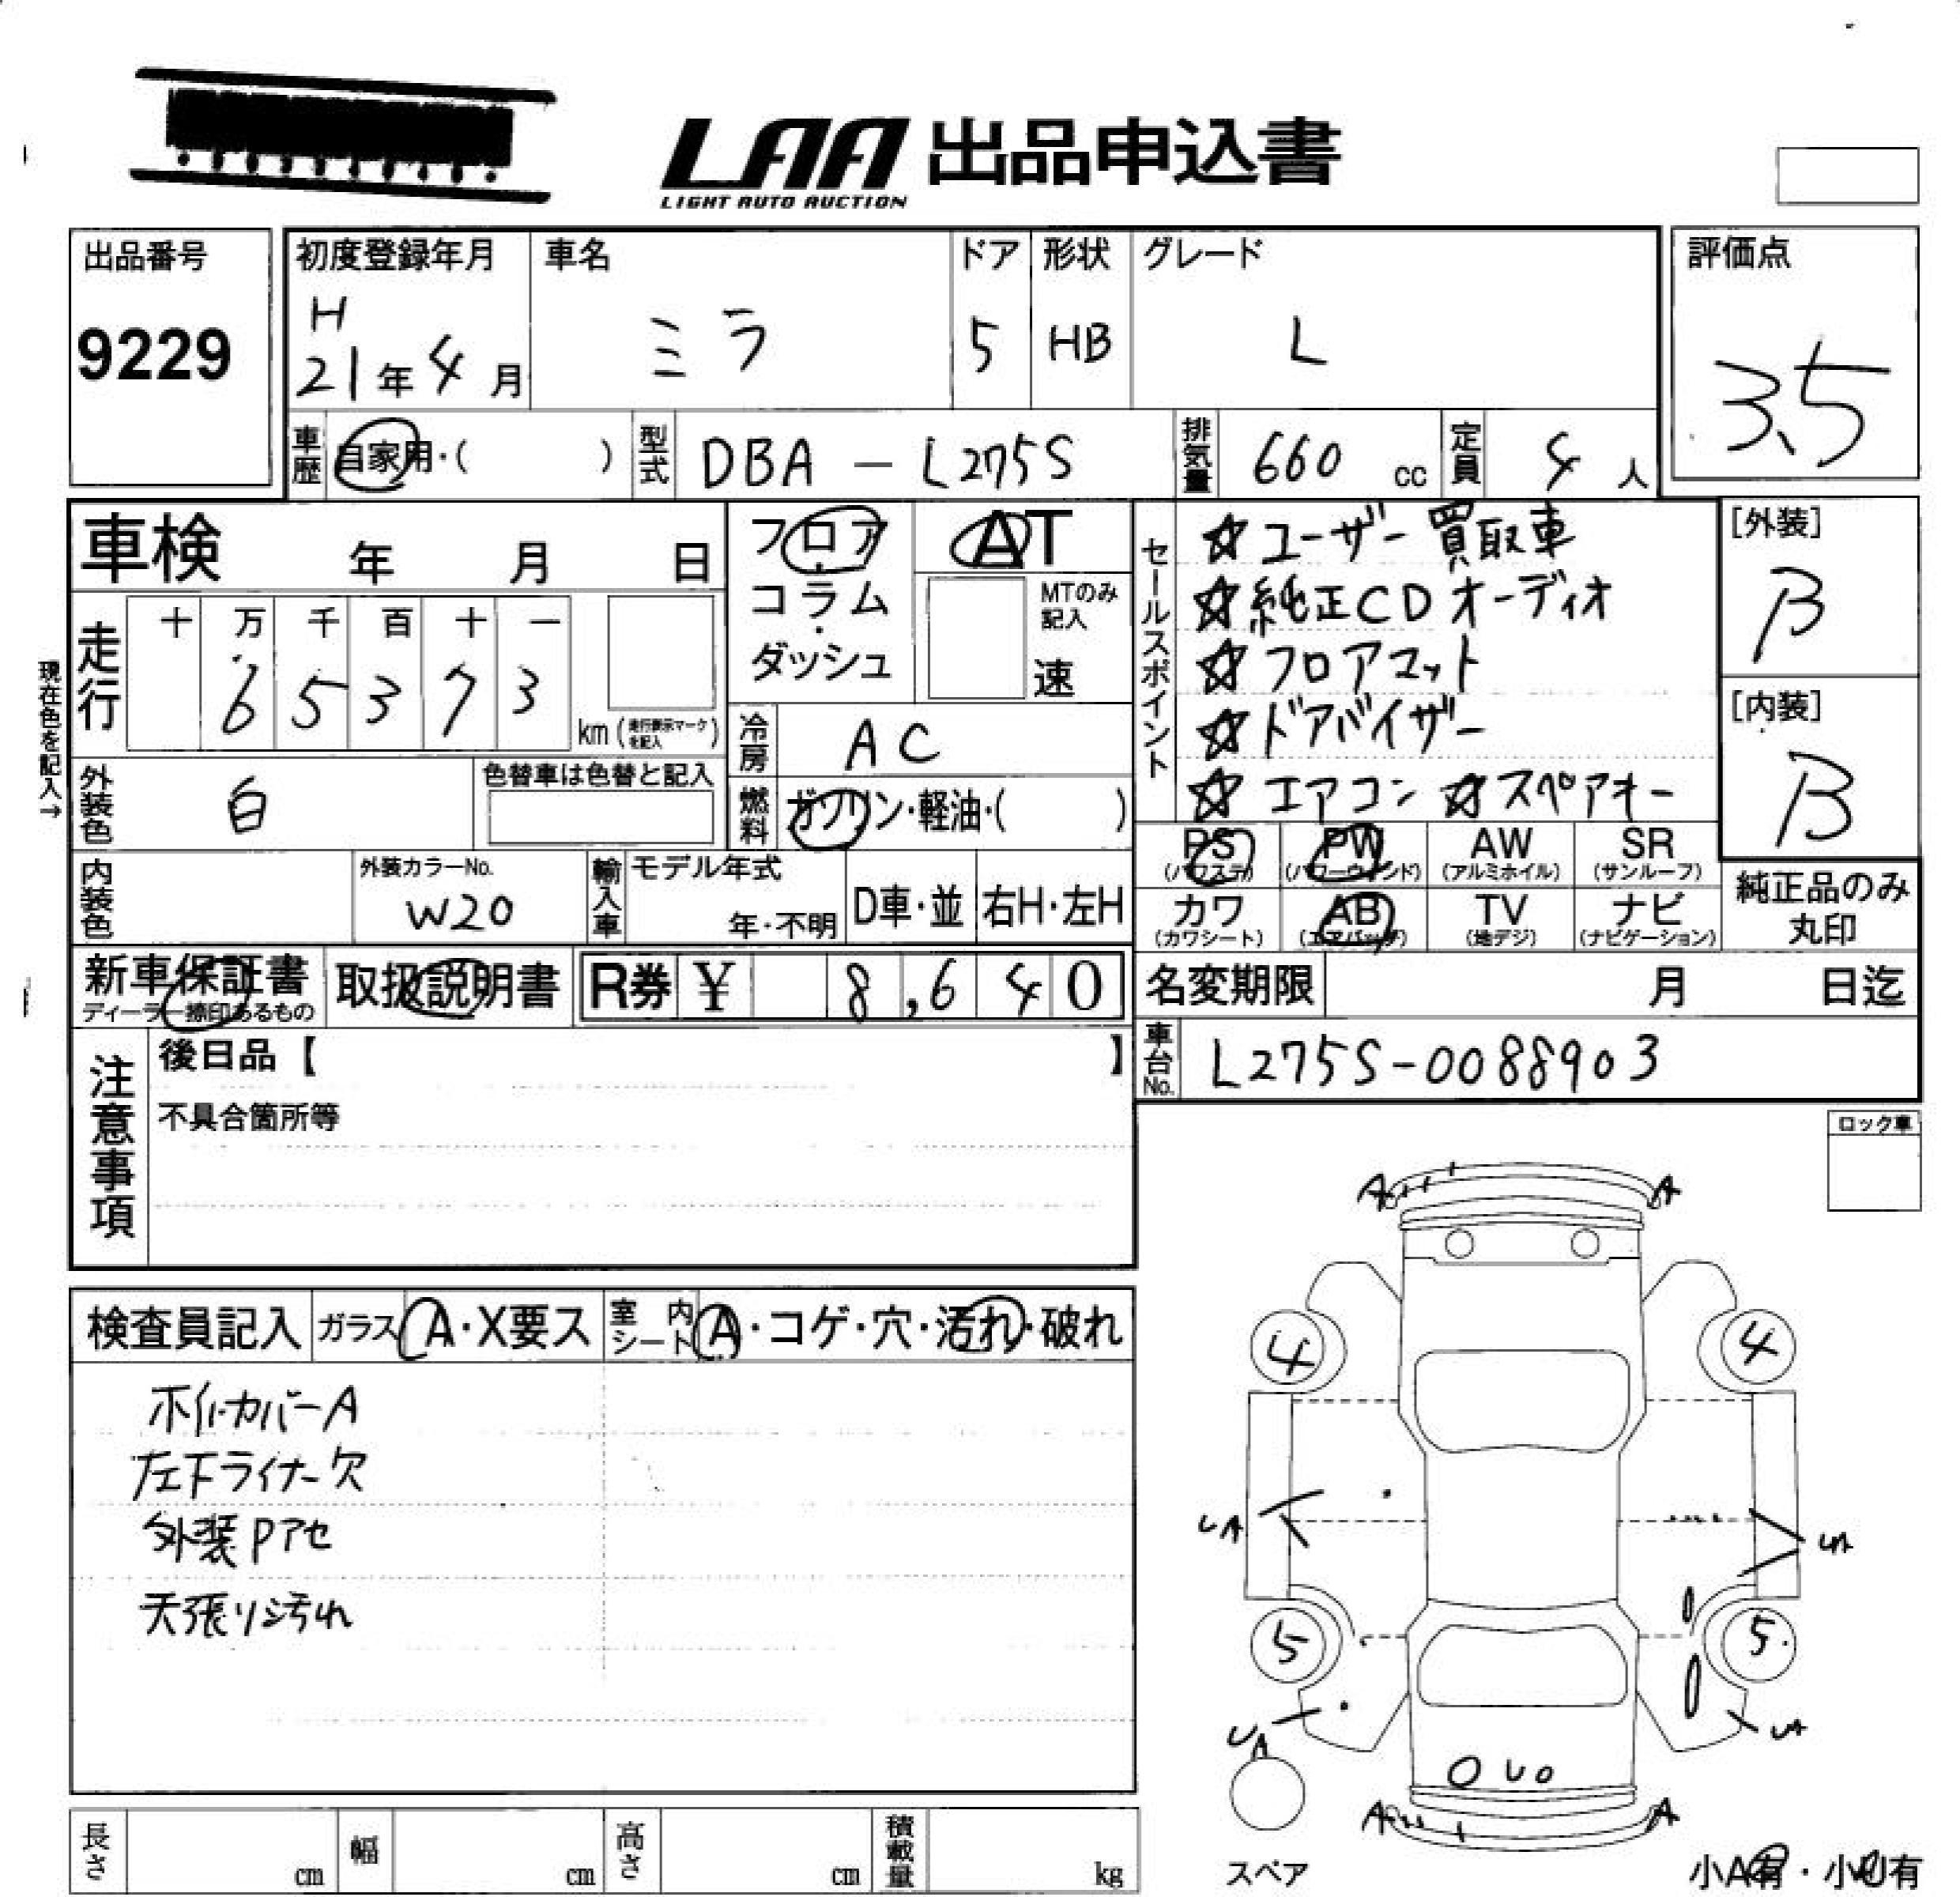 LAA 出品申込書
LIGHT AUTO AUCTION
出品番号
9229
初度登録年月
H
21年4月
車名
ミラ
ドア
5
形状
HB
グレード
L
評価点
3.5
車歴
自家用・( )
型式
DBA - L275S
排気量
660 cc
定員
4 人
車検 年 月 日
フロア・コラム・ダッシュ
AT
MTのみ記入
速
セールスポイント
☆ユーザー買取車
☆純正CDオーディオ
☆フロアマット
☆ドアバイザー
☆エアコン ☆スペアキー
[外装]
B
[内装]
B
現在色を記入→
走行
十 万 千 百 十 一
6 5 3 7 3
km (走行表示マークを記入)
冷房
AC
外装色
白
色替車は色替と記入
燃料
ガソリン・軽油・( )
PS
(パワステ)
PW
(パワーウィンド)
AW
(アルミホイル)
SR
(サンルーフ)
内装色
外装カラーNo.
W20
輸入車
モデル年式
年・不明
D車・並
右H・左H
カワ
(カワシート)
AB
(エアバッグ)
TV
(地デジ)
ナビ
(ナビゲーション)
純正品のみ
丸印
新車保証書
ディーラー捺印あるもの
取扱説明書
R券 ¥ 8,640
名変期限 月 日迄
車台No.
L275S-0088903
注意事項
後日品【 】
不具合箇所等
ロック車
検査員記入
ガラス A・X要ス
室内シート A・コゲ・穴・汚れ・破れ
カバーA
左下ライナー欠
外装Pアセ
天張り汚れ
A A
4 4
UA UA
5 5
UA UA
U
A A
スペア
長さ cm
幅 cm
高さ cm
積載量 kg
小A有・小U有